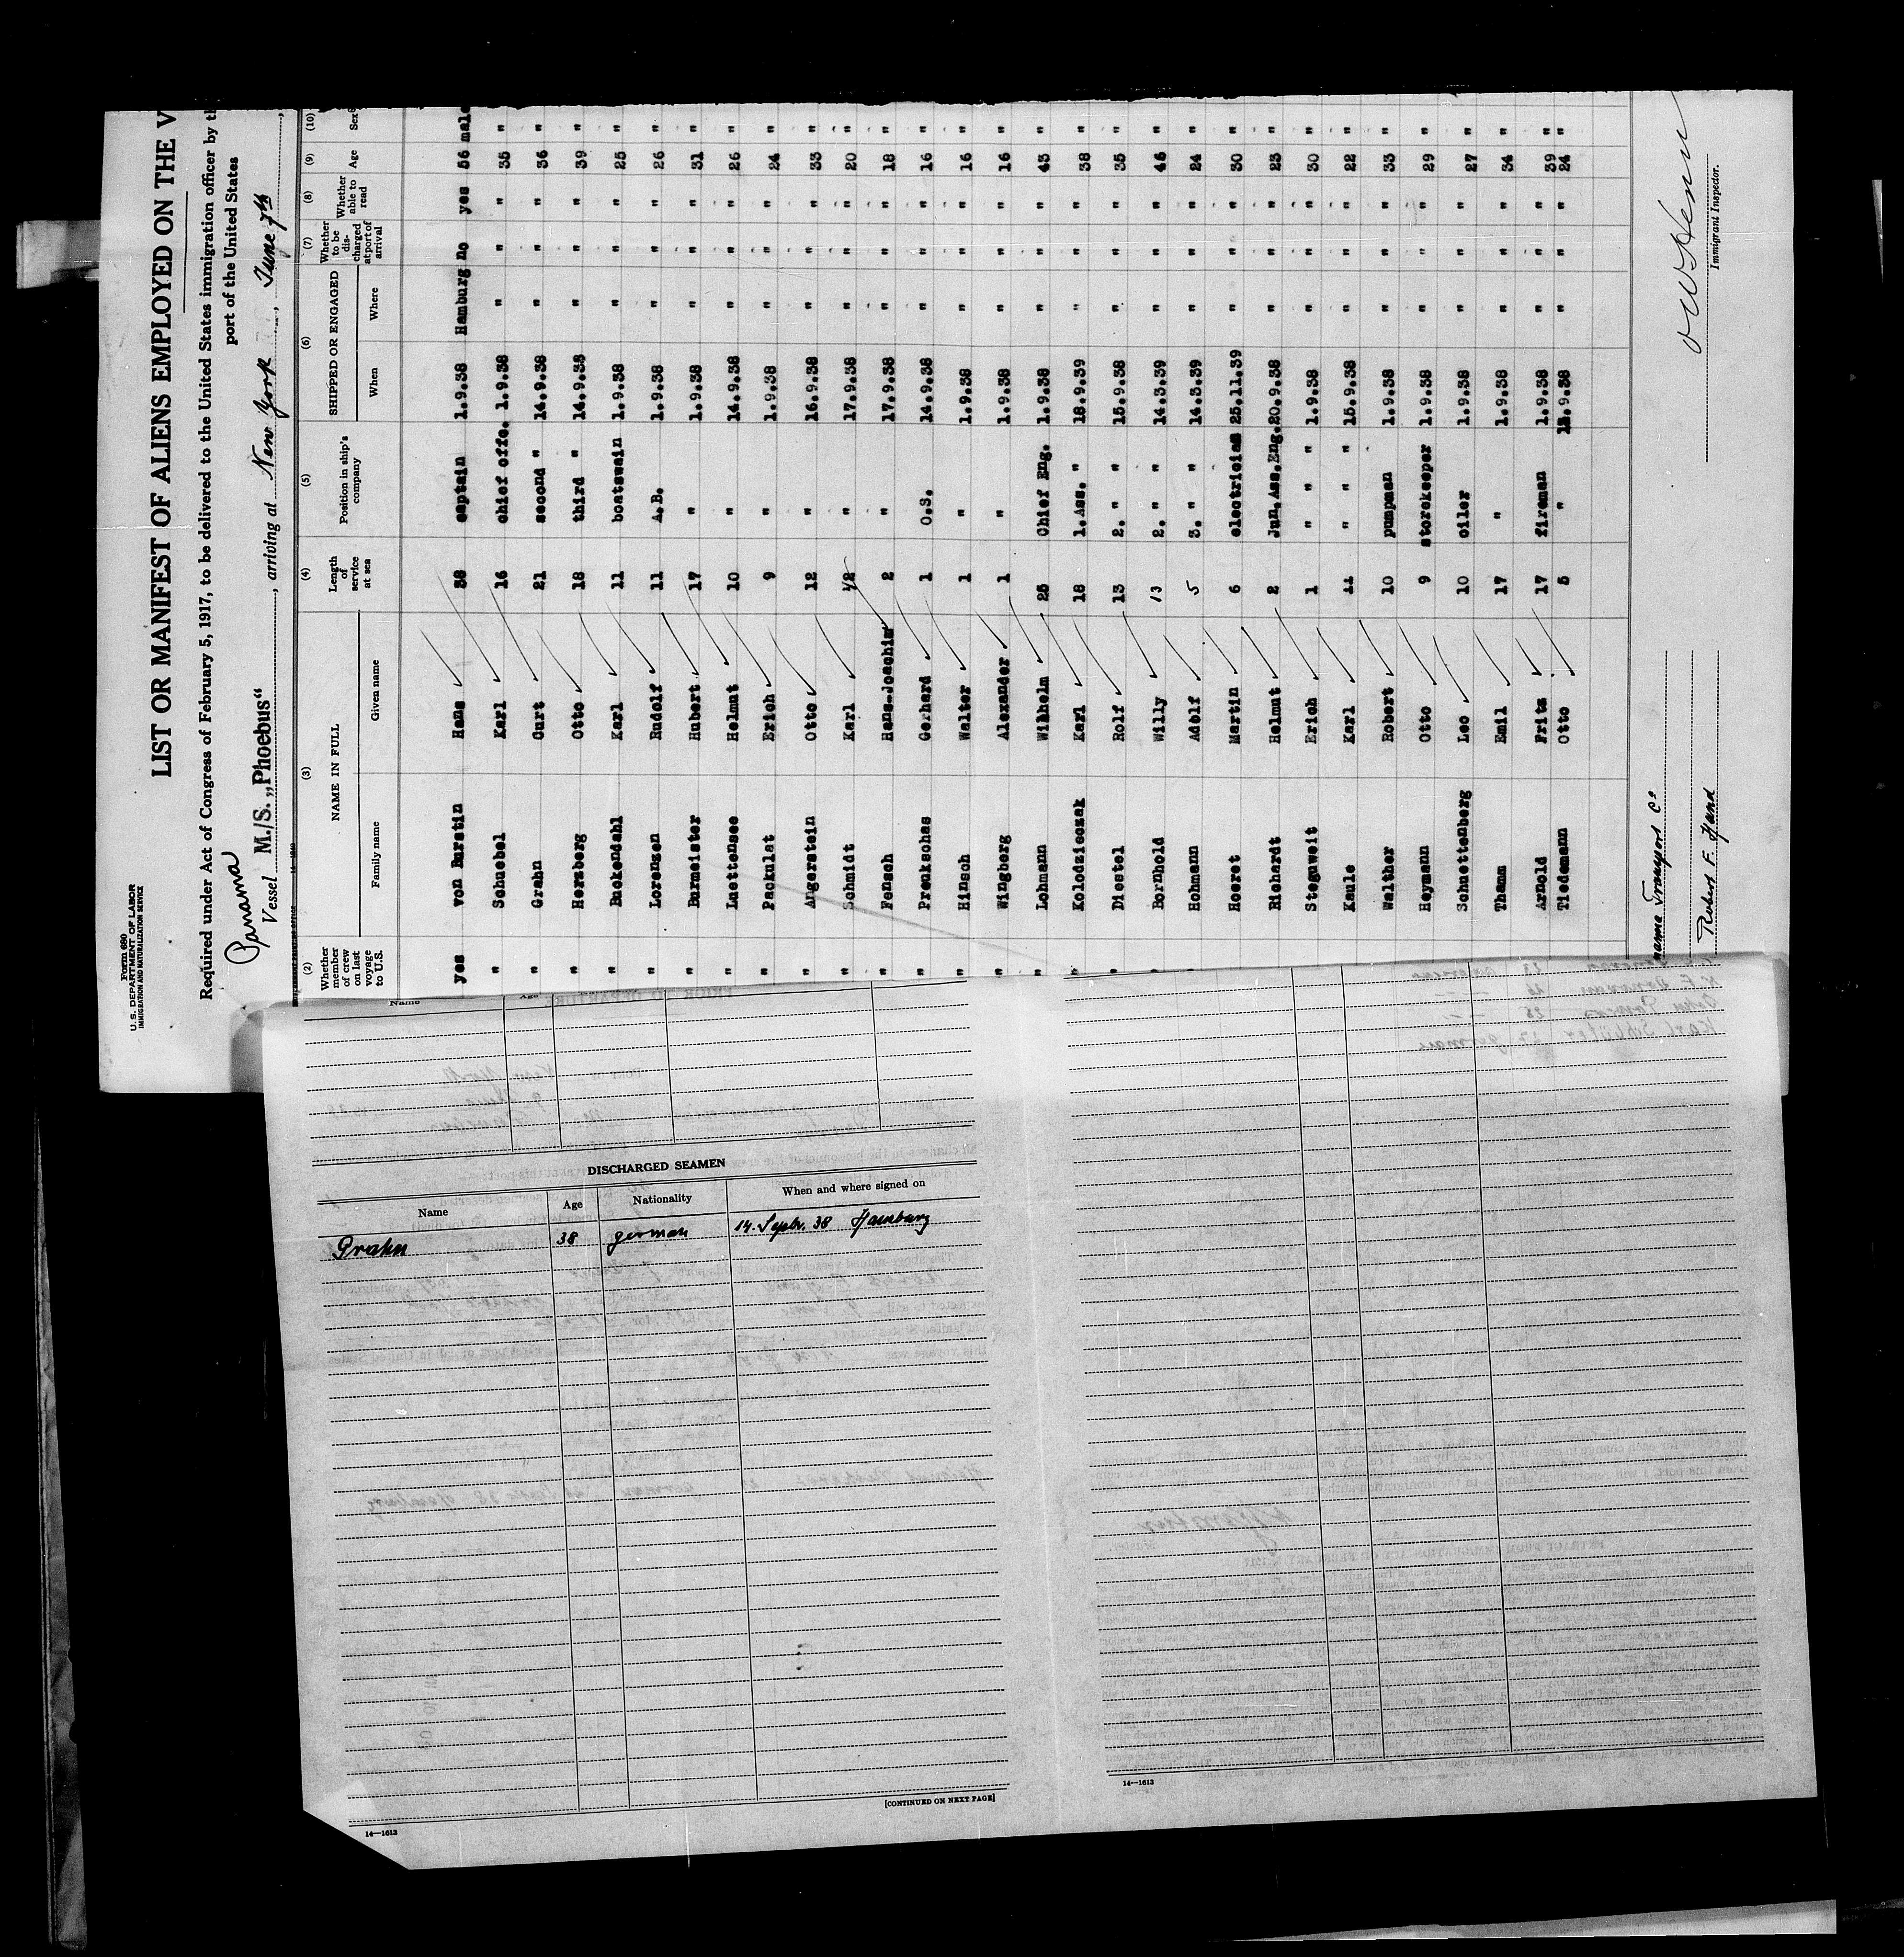 Form 680
U. S. DEPARTMENT OF LABOR
IMMIGRATION AND NATURALIZATION SERVICE
LIST OR MANIFEST OF ALIENS EMPLOYED ON THE V
Required under Act of Congress of February 5, 1917, to be delivered to the United States immigration officer by th
port of the United States
Panama
Vessel M./S. „Phoebus“, arriving at New York, June 7th,
(2) (3) (4) (5) (6) (7) (8) (9) (10)
Whether member of crew on last voyage to U.S. NAME IN FULL Length of service at sea Position in ship's company SHIPPED OR ENGAGED Whether to be discharged at port of arrival Whether able to read Age Sex
Family name Given name When Where
yes von Burstin Hans 38 captain 1.9.38 Hamburg no yes 56 male
" Schuebel Karl 16 chief offc. 1.9.38 " " " 35 "
" Grahn Curt 21 second " 14.9.38 " " " 36 "
" Herzberg Otto 18 third " 14.9.38 " " " 39 "
" Buckendahl Karl 11 boatswain 1.9.38 " " " 25 "
" Lorenzen Rudolf 11 A.B. 1.9.38 " " " 26 "
" Burmeister Hubert 17 " 1.9.38 " " " 31 "
" Luettensee Helmut 10 " 14.9.38 " " " 26 "
" Packulat Erich 9 " 1.9.38 " " " 24 "
" Angerstein Otto 12 " 16.9.38 " " " 33 "
" Schmidt Karl " 17.9.38 " " " 20 "
" Fensch Hans-Joachim 2 " 17.9.38 " " " 18 "
" Preukschas Gerhard 1 O.S. 14.9.38 " " " 16 "
" Hinsch Walter 1 " 1.9.38 " " " 16 "
" Wingberg Alexander 1 " 1.9.38 " " " 16 "
" Lohmann Wilhelm 25 Chief Eng. 1.9.38 " " " 43 "
" Kolodzieczak Karl 18 1.Ass. " 18.9.39 " " " 38 "
" Diestel Rolf 13 2. " " 15.9.38 " " " 35 "
Bornhold Willy 13 2. " " 14.3.39 " " " 46 "
Hohmann Adolf 5 3. " " 14.3.39 " " " 24 "
Hoeret Martin 6 electrician 25.11.39 " " " 30 "
Richardt Helmut 2 Jun.Ass.Eng. 20.9.38 " " " 23 "
Steguweit Erich 1 " " " 1.9.38 " " " 30 "
Kaule Karl 11 " " " 15.9.38 " " " 22 "
Walther Robert 10 pumpman 1.9.38 " " " 33 "
Heymann Otto 9 storekeeper 1.9.38 " " " 29 "
Schuettenberg Leo 10 oiler 1.9.38 " " " 27 "
Thamm Emil 17 " 1.9.38 " " " 34 "
Arnold Fritz 17 fireman 1.9.38 " " " 39 "
Tiedemann Otto 5 " .9.38 " " " 24 "
Immigrant Inspector.
Transport Co
Robert F. Hand
Name Age
DISCHARGED SEAMEN
Name Age Nationality When and where signed on
Prahn 38 german 14. Septbr. 38 Hamburg
[CONTINUED ON NEXT PAGE]
14—1613
14—1613